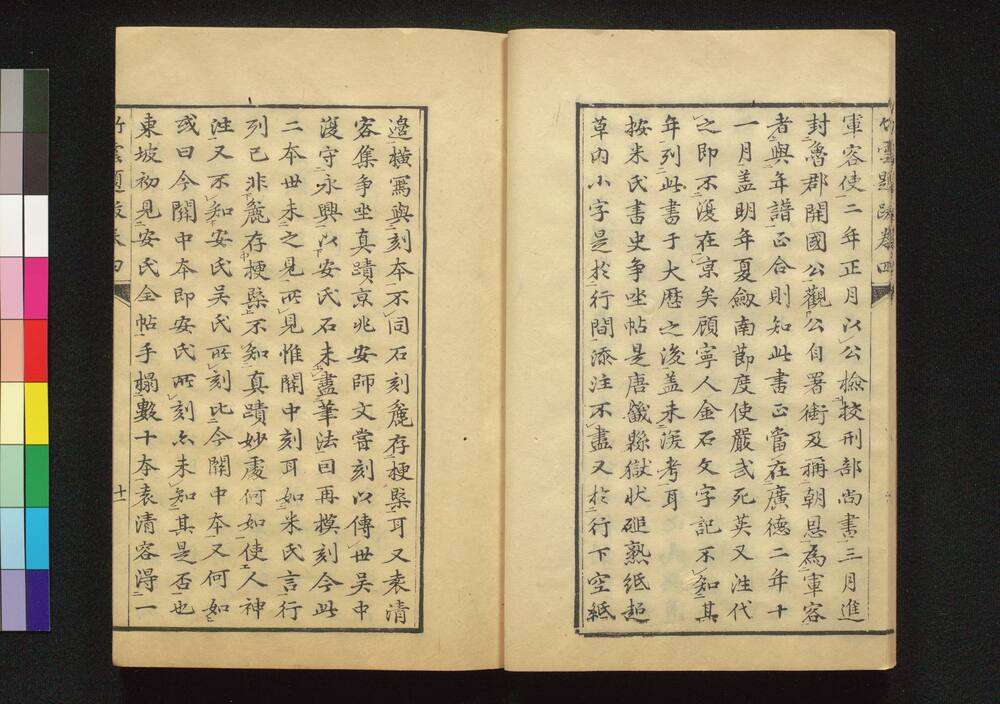 竹雲題跋卷四
軍容使二年正月以公檢校刑部尚書三月進
封魯郡開國公觀公自署銜及稱朝恩為軍容
者與年譜正合則知此書正當在廣德二年十
一月盖明年夏劔南節度使嚴武死英乂徃代
之即不復在京矣顧寧人金石文字記不知其
年列此書于大歷之後盖未深考耳
按米氏書史争坐帖是唐畿縣獄狀磓熟紙起
草内小字是於行間添注不盡又於行下空紙
邊横寫與刻本不同石刻麄存梗槩耳又袁清
容集争坐真蹟京兆安師文嘗刻以傳世吴中
復守永興以安氏石未盡筆法囙再模刻今此
二本世未之見所見惟關中刻耳如米氏言行
列已非麄存梗槩不知真蹟妙處何如使人神
徃又不知安氏吴氏所刻比今關中本又何如
或曰今關中本即安氏所刻亦未知其是否也
東坡初見安氏全帖手搨數十本袁清容得一
竹雲題跋卷四
十一